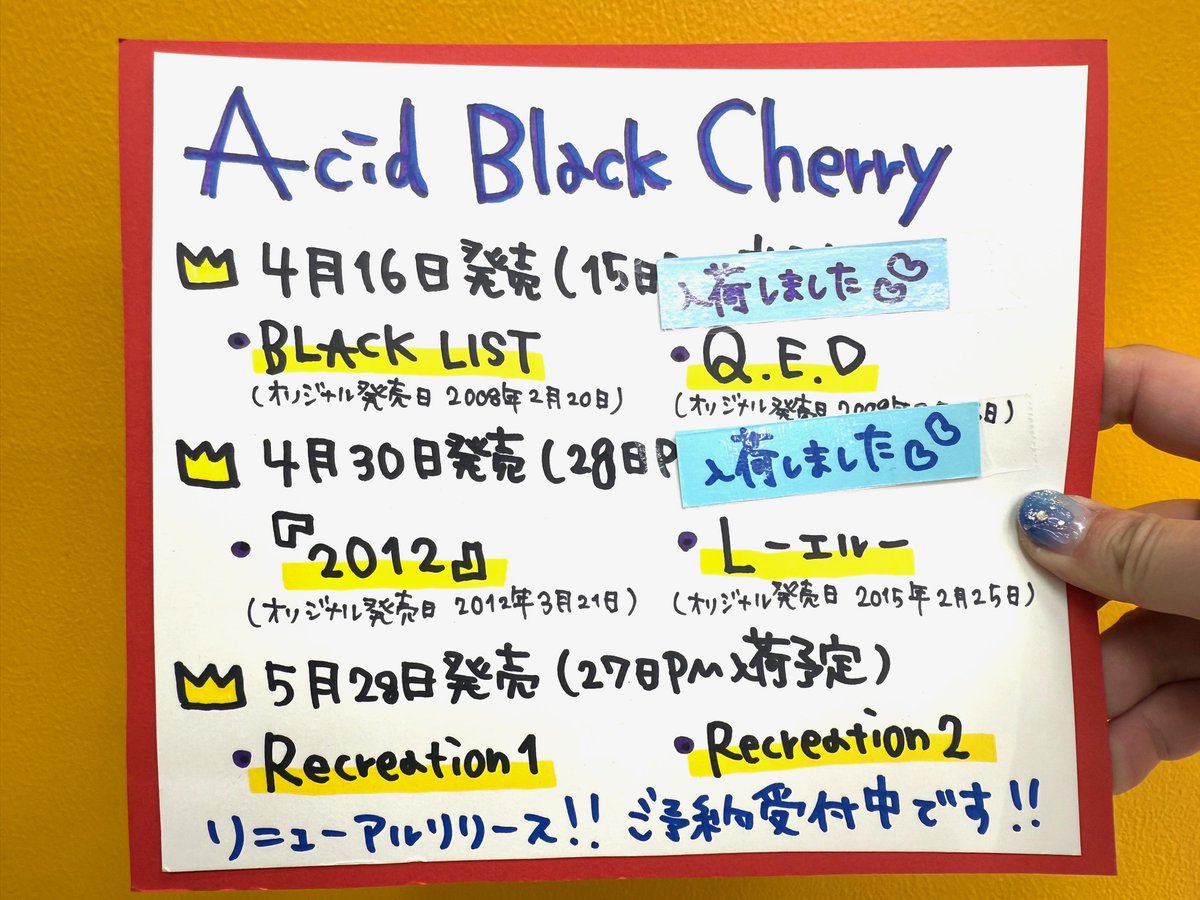 Acid Black Cherry
4月16日発売(15日
入荷しました
・BLACK LIST
(オリジナル発売日 2008年2月20日)
・Q.E.D
(オリジナル発売日 2009年
日)
4月30日発売(28日P
入荷しました
・『2012』
(オリジナル発売日 2012年3月21日)
・L-エル-
(オリジナル発売日 2015年2月25日)
5月28日発売(27日PM入荷予定)
・Recreation1
・Recreation2
リニューアルリリース!! ご予約受付中です!!